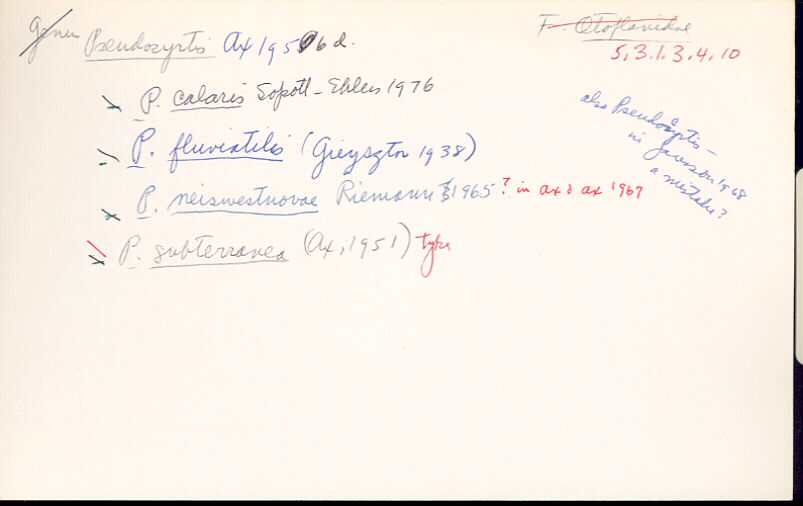 Genus Pseudosyrtis Ax 1956d.
F. Otoplanidae
5.3.1.3.4.10
P. calaris Sopott-Ehlers 1976
also Pseudosyrtis –
in Jansson 1968
a mistake?
P. fluviatilis (Gieysztor 1938)
P. neiswestnovae Riemann 1965 ? in Ax & Ax 1967
P. subterranea (Ax, 1951) type